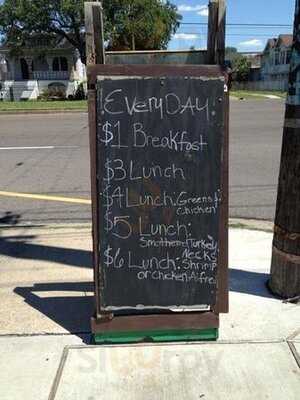 ! EveryDAY!
$1 Breakfast
$3 Lunch
$4 Lunch: Greens &
Chicken
$5 Lunch:
Smothered Turkey
Necks
$6 Lunch: Shrimp
or chicken Alfredo